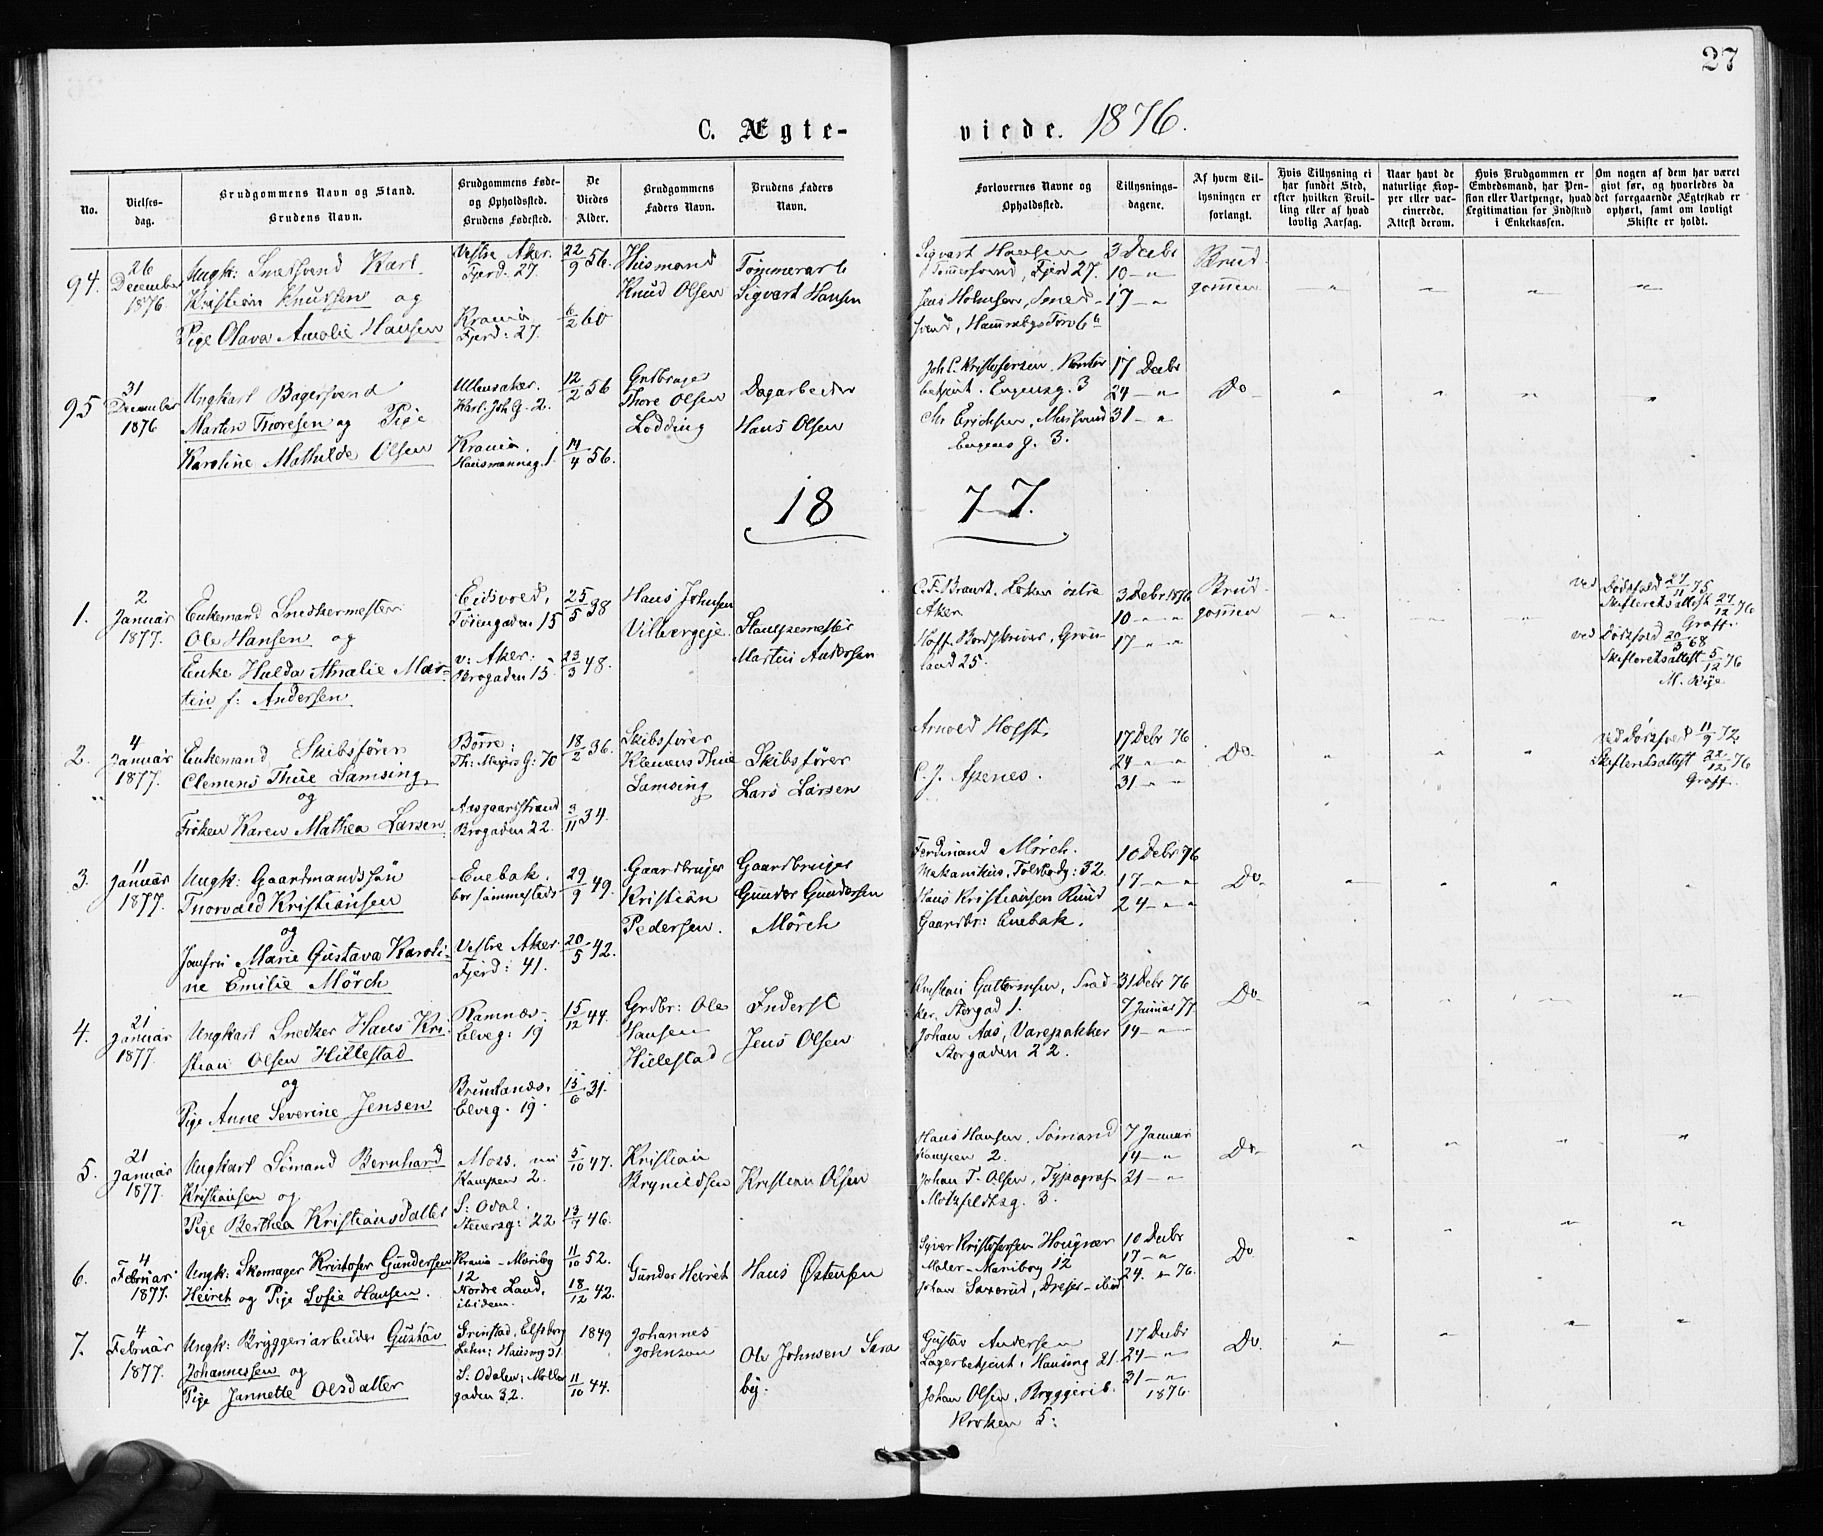 27
C. Ægte-
viede. 1876.
No.
Vielses-
dag.
Brudgommens Navn og Stand.
Brudens Navn.
Brudgommens Føde-
og Opholdssted.
Brudens Fødested.
De
Viedes
Alder.
Brudgommens
Faders Navn.
Brudens Faders
Navn.
Forlovernes Navne og
Opholdssted.
Tillysnings-
dagene.
Af hvem Til-
lysningen er
forlangt.
Hvis Tillysning ei
har fundet Sted,
efter hvilken Bevil-
ling eller af hvad
lovlig Aarsag.
Naar havt de
naturlige Kop-
per eller vac-
cinerede.
Attest derom.
Hvis Brudgommen er
Embedsmand, har Pen-
sion eller Vartpenge, hvad
Legitimation for Indskud
i Enkekassen.
Om nogen af dem har været
givt før, og hvorledes da
det foregaaende Ægteskab er
ophørt, samt om lovligt
Skifte er holdt.
94.
26
December
1876
Ungk: Smedsvend Karl
Kristian Knudsen og
Pige Olava Amalie Hansen
Vestre Aker.
Fjerd. 27.
Krania
Fjerd: 27.
22/9 56.
6/2 60
Husmand
Knud Olsen
Tømmerarb
Sigvart Hansen
Sigvart Hansen
Tømmersvend, Fjerd 27.
Jens Holmsen, Smed-
svend, Hammersbgs Torv 6 b
3 Decbr
10 - "
17 - "
Brud
gommen
95
31
December
1876
Ungkarl Bagersvend
Martin Thoresen og Pige
Karoline Mathilde Olsen
Ullensaker.
Karl. Joh G. 2.
Krania,
Hausmannsg. 1.
12/2 56
14/4 56.
Gulbruge
Thore Olsen
Lodding
Dagarbeider
Hans Olsen
Joh C. Kristofersen, Kontor
betjent. Eugensg. 3
Chr Erichsen, Mursvend
Eugens g. 3.
17 Decbr
24 - "
31 - "
Do
18 77.
1.
2
Januar
1877.
Enkemand Snedkermester
Ole Hansen og
Enke Hulda Amalie Mar-
tin f: Andersen
Eidsvold,
Tøiengaden 15
v: Aker.
Brogaden 15
25/5 38
23/3 48.
Hans Johnsen
Vilbergeje.
Stampemester
Martin Andersen
C. F. Brandt. Løken østre
Aker
Hoff. Bordskriver, Grøn-
land 25.
3 Debr. 1876
10 - "
17 - "
Brud
gommen
ved Dødsfald 27/11 75
Skifteretsattest 27/12 76
Graff.
ved Dødsfald 20/3 68
Skifteretsattest 5/12 76
M. Rye
2.
4
Januar
1877.
Enkemand Skibsfører
Clemens Thue Samsing
og
Frøken Karen Mathea Larsen
Borre.
Th: Meyers G: 70
Aasgaardstrand
Brogaden 22.
18/2 36.
3/11 34.
Skibsfører
Klemens Thue
Samsing
Skibsfører
Lars Larsen
Arnold Hofst.
C. J. Apenes.
17 Debr 76
24 - "
31 - "
Do.
ved Dødsfald 11/9 72
Skifteretsattest 22/12 76
Graff.
3.
11
Januar
1877.
Ungk: Gaardmandssøn
Thorvald Kristiansen
og
Jomfru Marie Gustava Karoli-
ne Emilie Mørch
Enebak.
bor sammesteds
Vestre Aker
Fjerd: 41.
29/9 49.
20/5 42.
Gaardbruger
Kristian
Pedersen.
Gaardbruger
Gunder Gundersen
Mørch
Ferdinand Mørch.
Mekanikus, Toldbodg: 32.
Hans Kristiansen Ruud
Gaardbr: Enebak.
10 Debr 76
17 - "
24 - "
Do.
4.
21
Januar
1877.
Ungkarl Snedker Hans Kri-
stian Olsen Hillestad
og
Pige Anne Severine Jensen
Ramnæs.
Elveg: 19
Brunlanæs.
Elveg. 19.
15/12 44.
15/6 31.
Grdbr: Ole
Hansen
Hillestad
Inderst
Jens Olsen
Kristian Guttormsen, Snd-
ker, Storgad 1.
Johan Aas, Varepakker
Storgaden 22.
31 Debr 76
7 Januar 77
14 - "
Do.
5.
21
Januar
1877.
Ungkarl Sømand Bernhard
Kristiansen og
Pige Berthea Kristiansdatter
Moss. nu
Kampen 2.
S: Odal.
Steners g: 22
5/10 47.
13/7 46.
Kristian
Brynildsen
Kristian Olsen
Hans Hansen, Sømand
Kampen 2.
Johan F. Olsen, Typograf
Motzfeldtsg. 3.
7 Januar
14 - "
21 - "
Do.
6.
4
Februar
1877.
Ungk: Skomager Kristofer Gundersen
Heiret og Pige Sofie Hansen.
Krania - Maribog
12
Nordre Land,
ibidem.
11/10 52.
18/12 42.
Gunder Heiret
Hans Østensen
Syver Kristofersen Hougnær
Maler - Maribog 12
Johan Saxerud, Drejer - ibid
10 Decbr
17 - "
24. " 76.
Do
7.
4
Februar
1877.
Ungk: Bryggeriarbeider Gustav
Johannessen og
Pige Jannette Olsdatter
Grinstad, Elfsborg
Lehn: Hausmg 21
S. Odalen; Møller
gaden 32.
1849
11/10 44.
Johannes
Johnson
Ole Johnsen Sara
by.
Gustav Andersen
Lagerbetjent, Hausmg 21.
Johan Olsen, Bryggerib.
Kroken 5:
17 Decbr
24 - "
31 - "
1876.
Do.